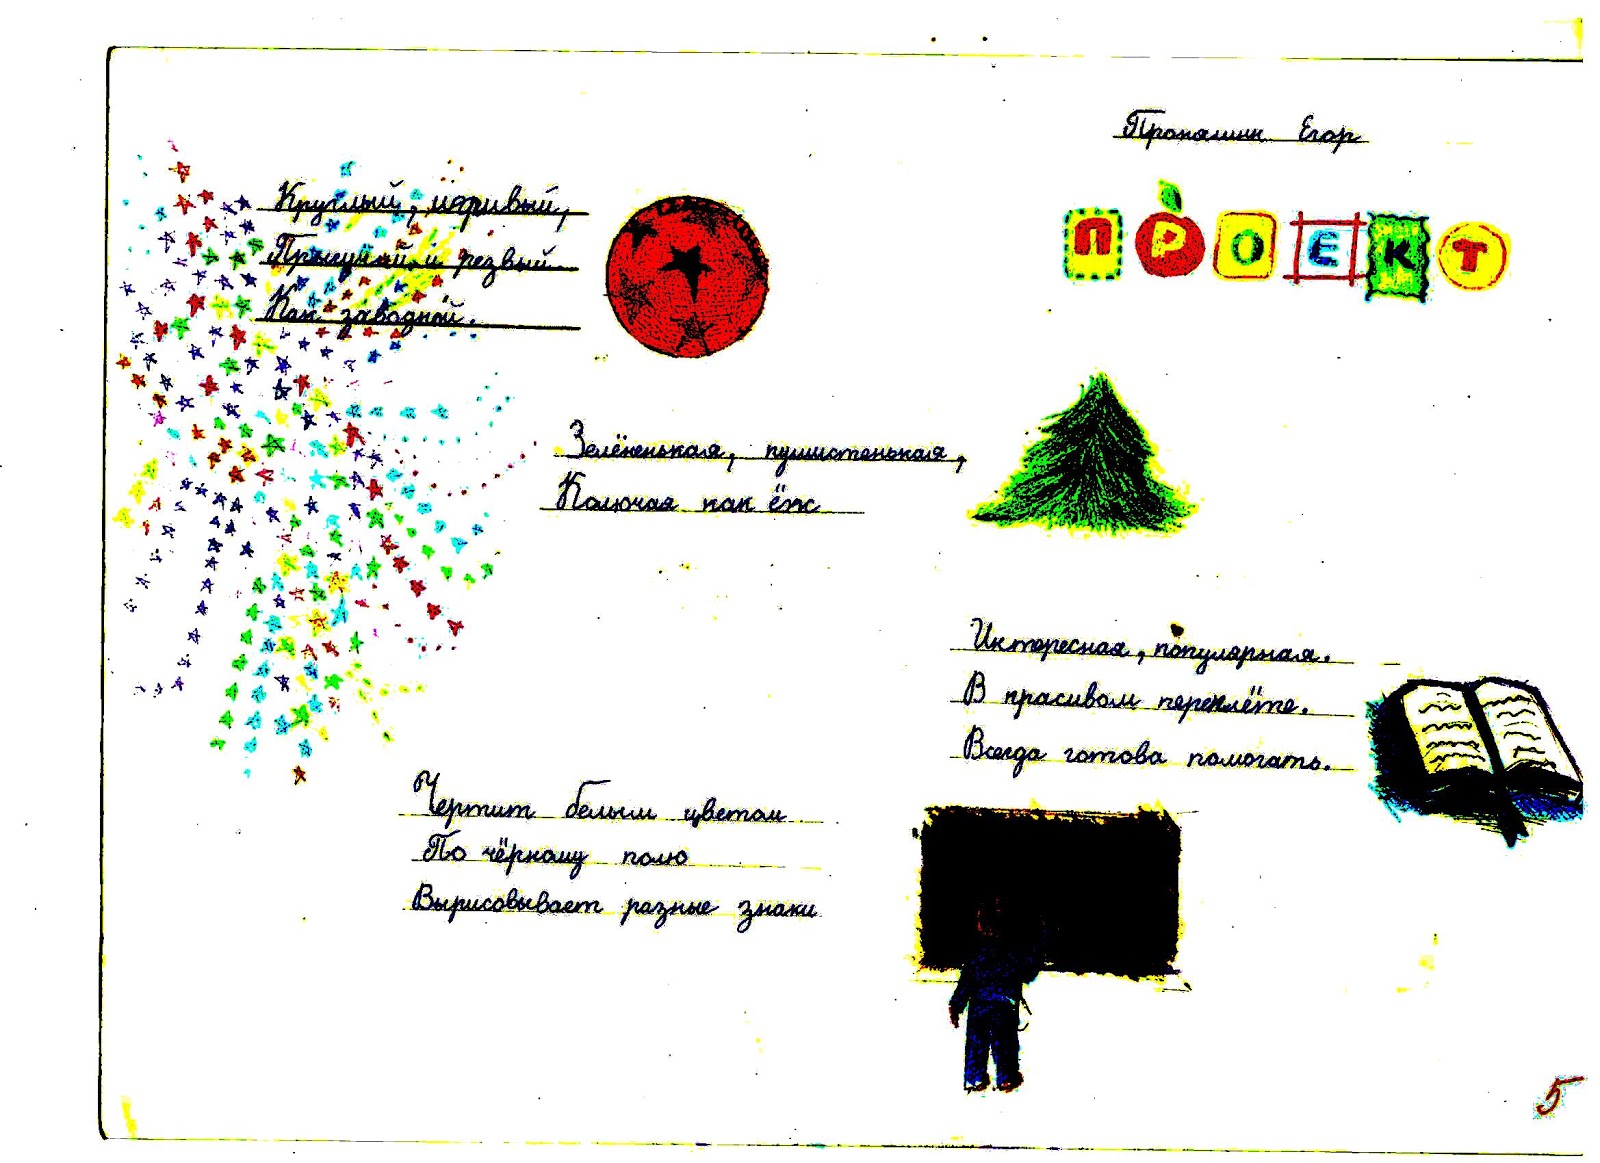 Егор
ПРОЕКТ
Круглый, игривый,
Прыгучий и резвый
Как заводной.
Зелёненькая, пушистенькая,
Колючая как ёж
Интересная, популярная.
В красивом переплёте.
Всегда готова помогать.
Чертит белым цветом
По чёрному полю
Вырисовывает разные знаки
5